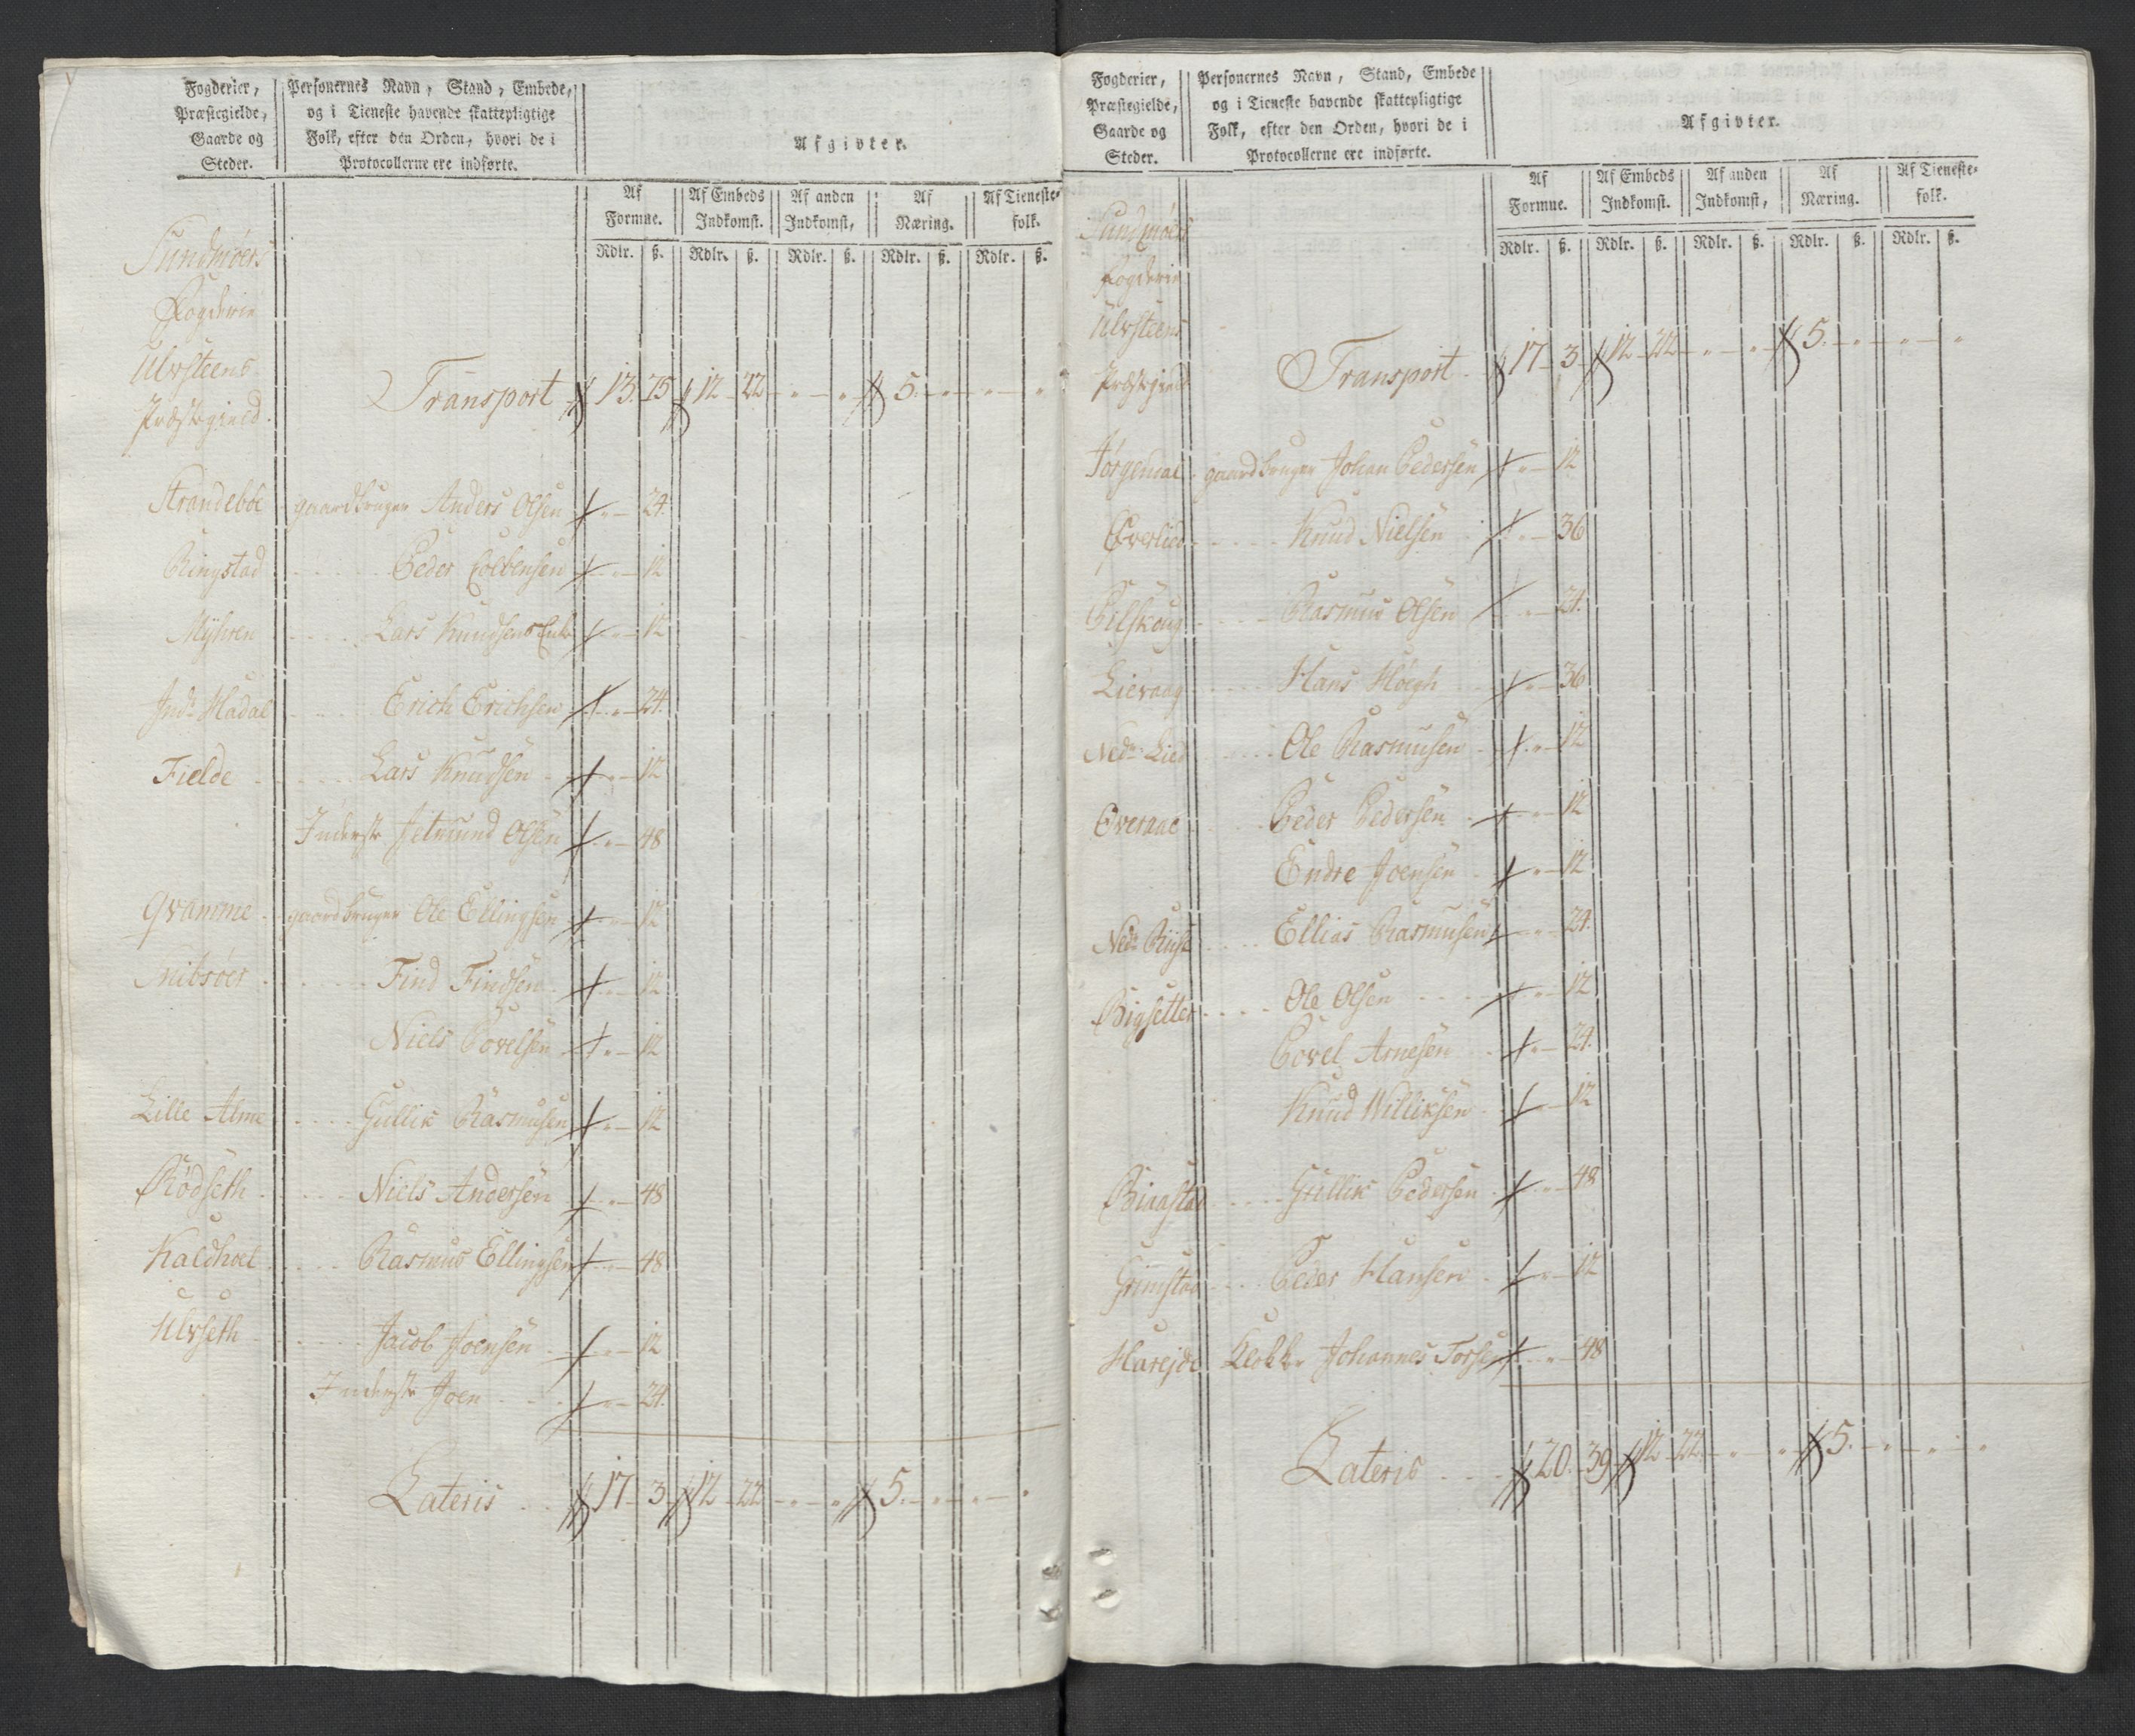 Fogderier, Præstegielde, Gaarde og Steder.
Personernes Navn, Stand, Embede, og i Tieneste havende skattepligtige Folk, efter den Orden, hvori de i Protocollerne ere indførte.
Afgivter.
Af Formue. Af Embeds Indkomst. Af anden Indkomst, Af Næring. Af Tieneste-folk.
Rdlr. ß. Rdlr. ß. Rdlr. ß. Rdlr. ß. Rdlr. ß.
Sundmøers
Fogderie
Ulvsteens
Præstegield
Transport 13. 75 12 22 " " 5. " " "
Strandeboe gaardbruger Anders Olsen " 24.
Ringstad Peder Colbensen " 12
Myhren Lars Knudsens Enke " 12
Indr. Hadal Erich Erichsen " 24.
Fielde Lars Knudsen " 12
Inderste Jetmund Olsen " 48
Qvamme gaardbruger Ole Ellingsen " 12
Snibsøer Find Findsen " 12
Niels Povelsen " 12
Lille Alme Gullik Rasmusen " 12
Rødseth Niels Andersen " 48
Kaldhoel Rasmus Ellingsen " 48
Ulvseth Jacob Joensen " 12
Inderste Joen " 24.
Lateris 17 3 12 22 " " 5. " " "
Fogderier, Præstegielde, Gaarde og Steder.
Personernes Navn, Stand, Embede og i Tieneste havende skattepligtige Folk, efter den Orden, hvori de i Protocollerne ere indførte.
Afgivter.
Af Formue. Af Embeds Indkomst. Af anden Indkomst, Af Næring. Af Tieneste-folk.
Rdlr. ß. Rdlr. ß. Rdlr. ß. Rdlr. ß. Rdlr. ß.
Sundmøers
Fogderie
Ulvsteens
Præstegield
Transport 17 3 12 22 " " 5. " " "
Jørgendal gaardbruger Johan Pedersen " 12
Overlied Knud Nielsen " 36
Pilskoug Rasmus Olsen " 24.
Lievaag Hans Høegh " 36
Nedr. Lied Ole Rasmusen " 12
Overaae Peder Pedersen " 12
Endre Joensen " 12
Nedr. Riise Ellias Rasmusen " 24.
Bigsetter Ole Olsen " 12
Povel Arnesen " 24.
Knud Williksen " 12
Biaastad Gullik Pedersen " 48
Grimstad Peder Hansen " 12
Harejde Klokker Johannes Torsen " 48
Lateris 20. 39 12 22. " " 5. " " "